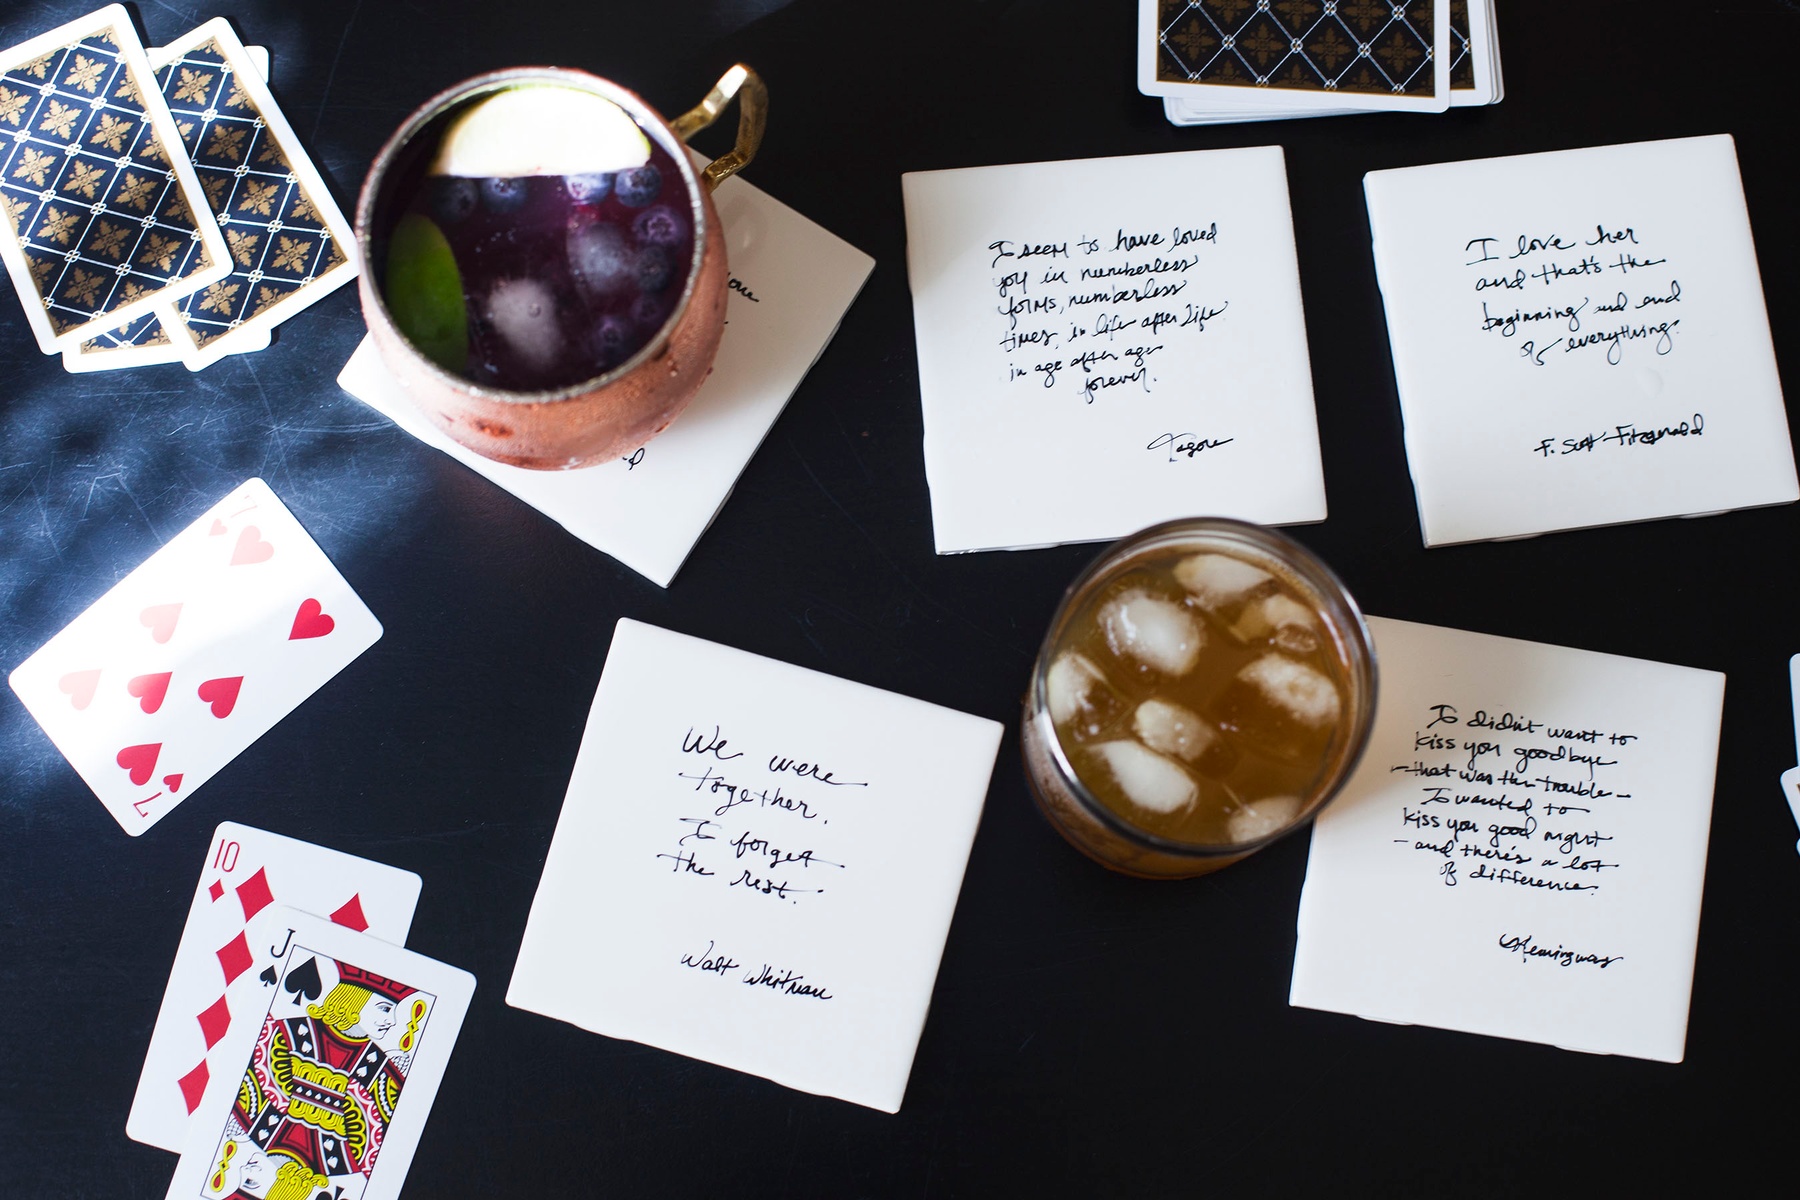 you
I seem to have loved
you in numberless
forms, numberless
times, in life after life
in age after age
forever.
Tagore
I love her
and that's the
beginning and end
of everything.
F. Scott Fitzgerald
7
7
We were
together.
I forget
the rest.
Walt Whitman
I didn't want to
kiss you goodbye
-that was the trouble-
I wanted to
kiss you good night
-and there's a lot
of difference.
Hemingway
10
J